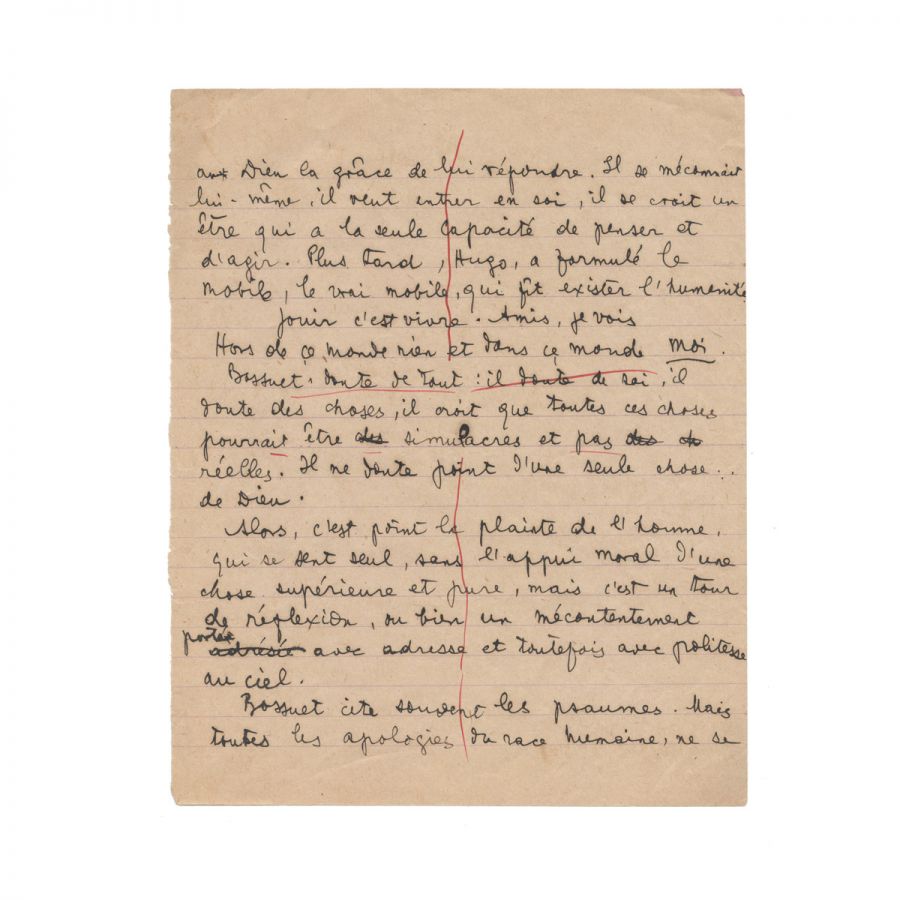 aux Dieu la grâce de lui répondre. Il se méconnait
lui-même, il veut entrer en soi, il se croit un
être qui a la seule capacité de penser et
d'agir. Plus tard, Hugo, a formulé le
mobile, le vrai mobile, qui fit exister l'humanité
Jouir c'est vivre. Amis, je vois
Hors de ce monde rien et dans ce monde moi.
Bossuet doute de tout : il doute de soi, il
doute des choses, il croit que toutes ces choses
pourrait être des simulacres et pas des ch
réelles. Il ne doute point d'une seule chose..
de Dieu.
Alors, c'est point la plainte de l'homme,
qui se sent seul, sans l'appui moral d'une
chose supérieure et pure, mais c'est un tour
de réflexion, ou bien un mécontentement
portée
adrésée avec adresse et toutefois avec politesse
au ciel.
Bossuet cite souvent les psaumes. Mais
toutes les apologies du race humaine, ne se